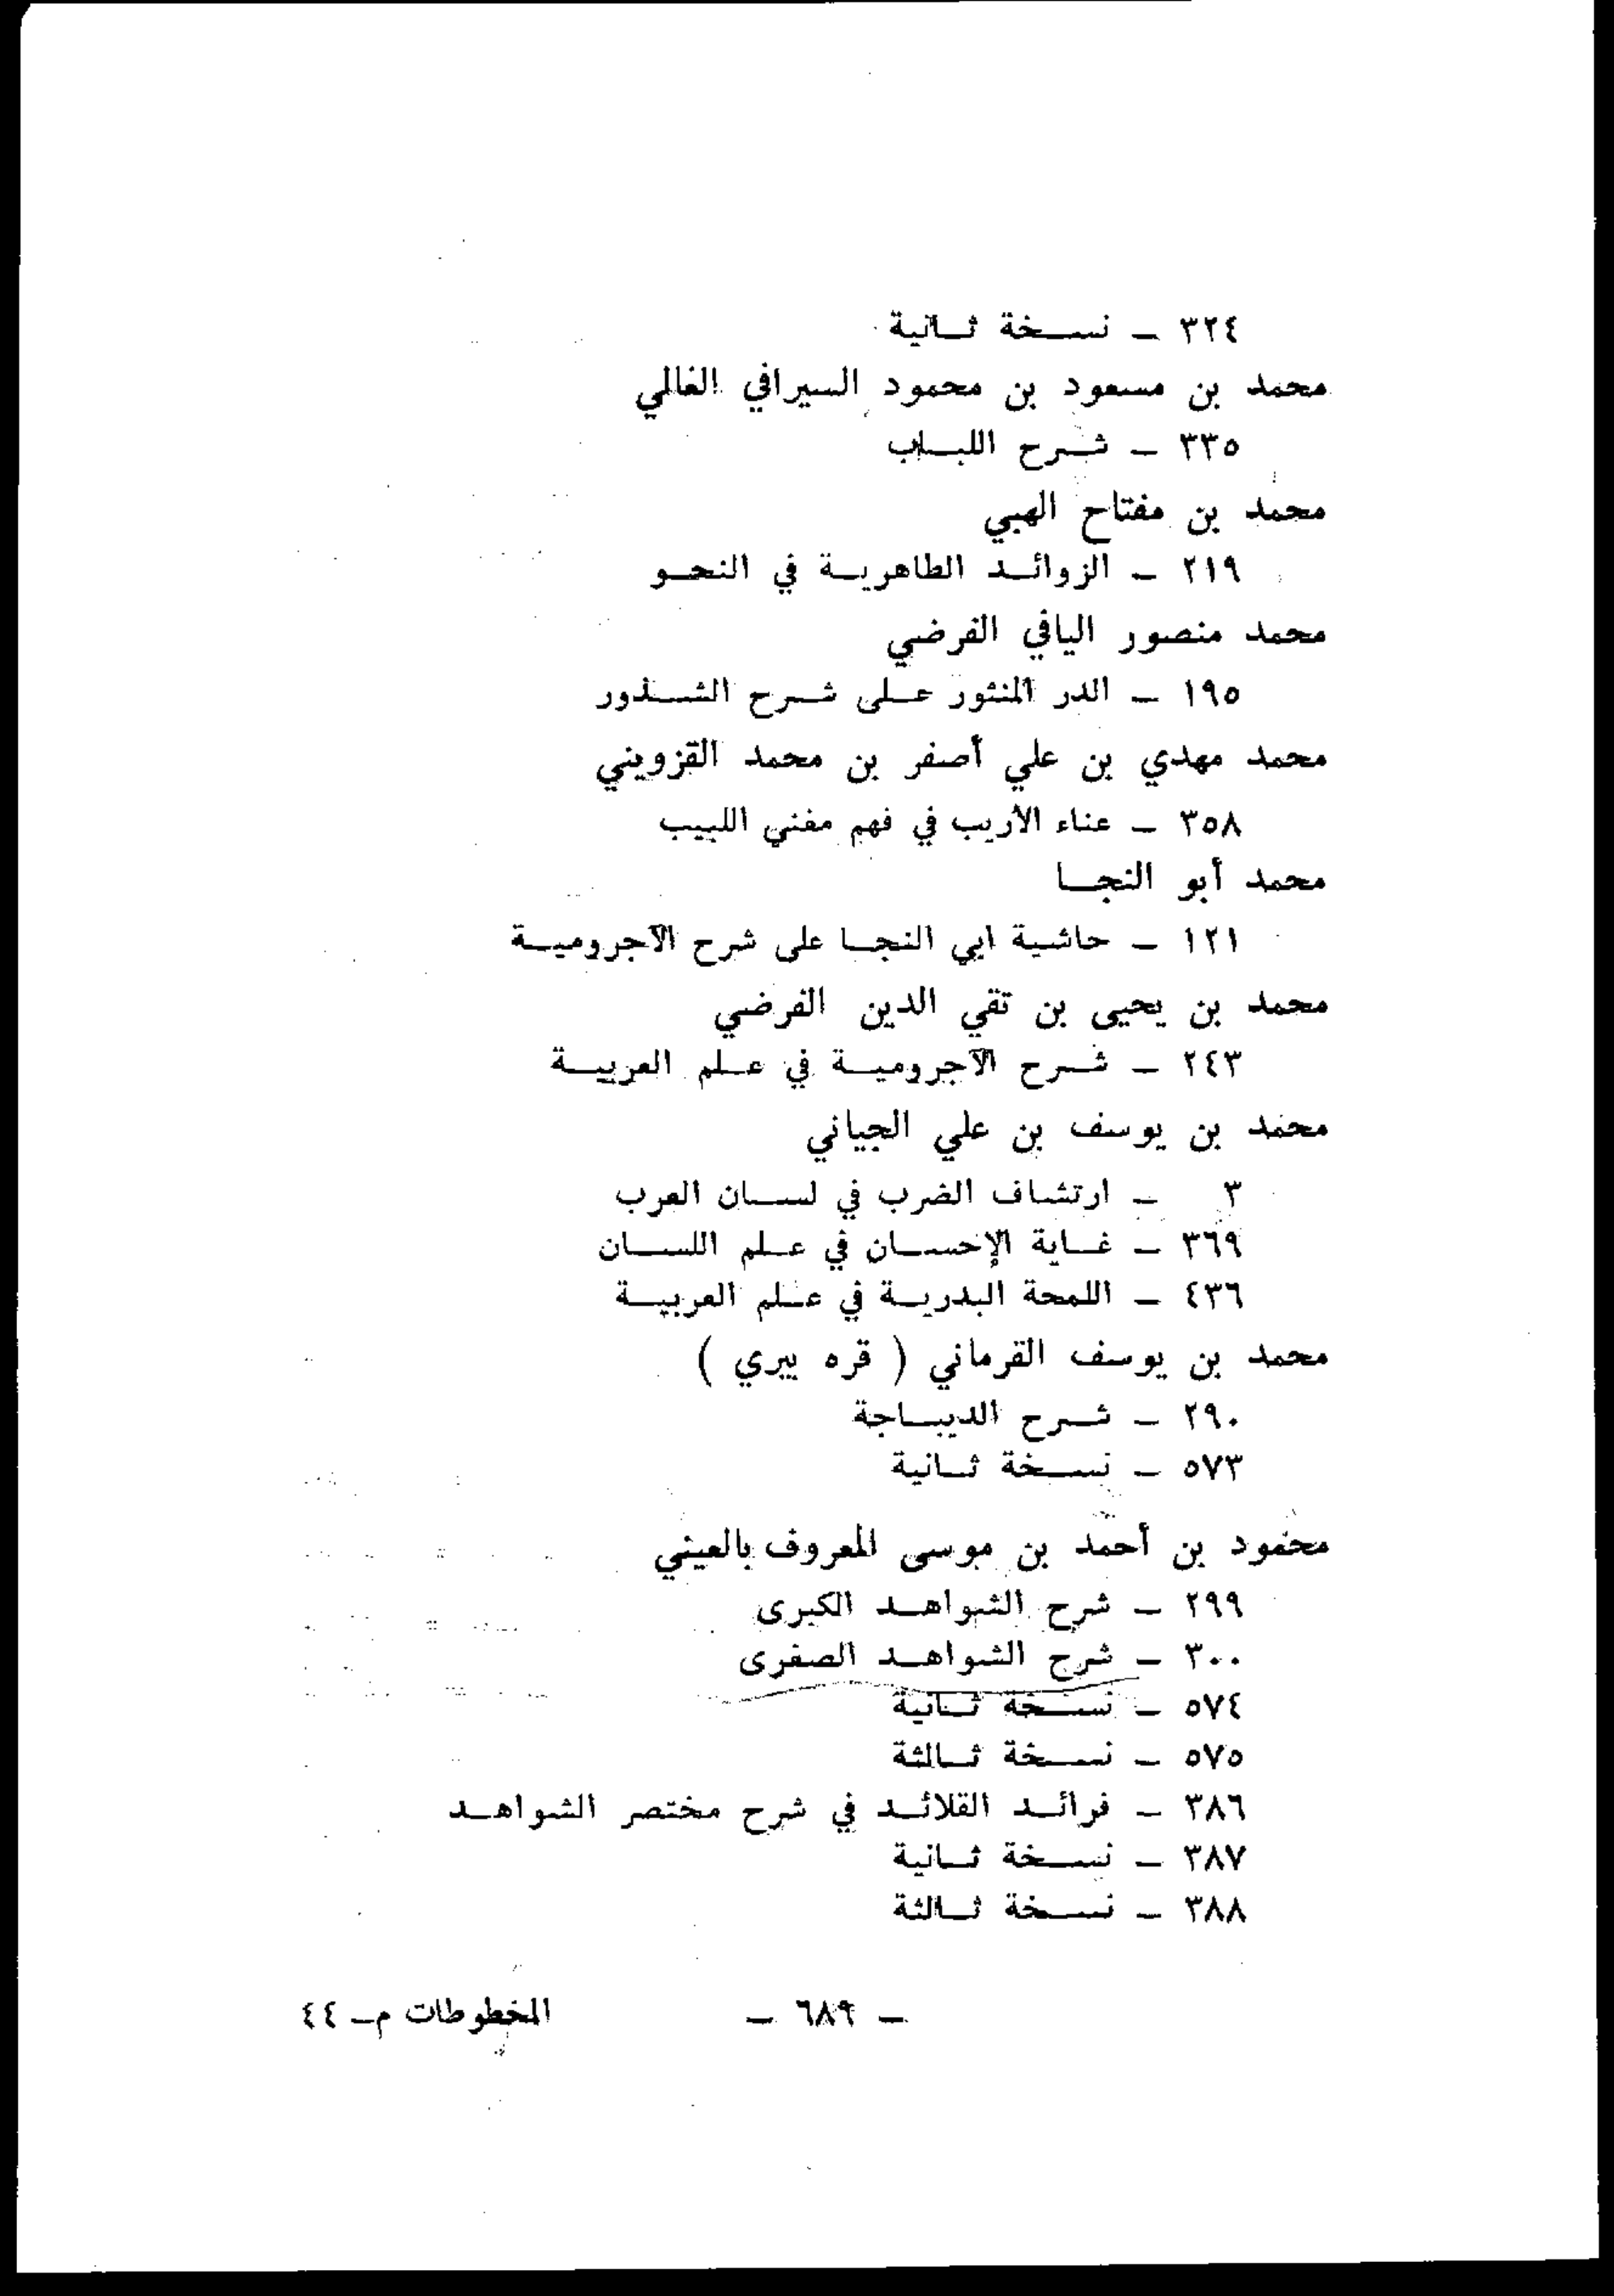 ٣٢٤ ـ نسخة ثانية
محمد بن مسعود بن محمود السيرافي الفالي
٣٣٥ ـ شرح اللباب
محمد بن مفتاح الهبي
٢١٩ ـ الزوائد الطاهرية في النحو
محمد منصور اليافي الفرضي
١٩٥ ـ الدر المنثور على شرح الشذور
محمد مهدي بن علي أصغر بن محمد القزويني
٣٥٨ ـ غناء الأريب في فهم مغني اللبيب
محمد أبو النجا
١٢١ ـ حاشية ابي النجا على شرح الآجرومية
محمد بن يحيى بن تقي الدين الفرضي
٢٤٣ ـ شرح الآجرومية في علم العربية
محمد بن يوسف بن علي الجياني
٣ ـ ارتشاف الضرب في لسان العرب
٣٦٩ ـ غاية الإحسان في علم اللسان
٤٣٦ ـ اللمحة البدرية في علم العربية
محمد بن يوسف القرماني ( قره بيري )
٢٩٠ ـ شرح الديباجة
٥٧٣ ـ نسخة ثانية
محمود بن أحمد بن موسى المعروف بالعيني
٢٩٩ ـ شرح الشواهد الكبرى
٣٠٠ ـ شرح الشواهد الصغرى
٥٧٤ ـ نسخة ثانية
٥٧٥ ـ نسخة ثالثة
٣٨٦ ـ فرائد القلائد في شرح مختصر الشواهد
٣٨٧ ـ نسخة ثانية
٣٨٨ ـ نسخة ثالثة
ـ ٦٨٩ ـ
المخطوطات م ـ ٤٤